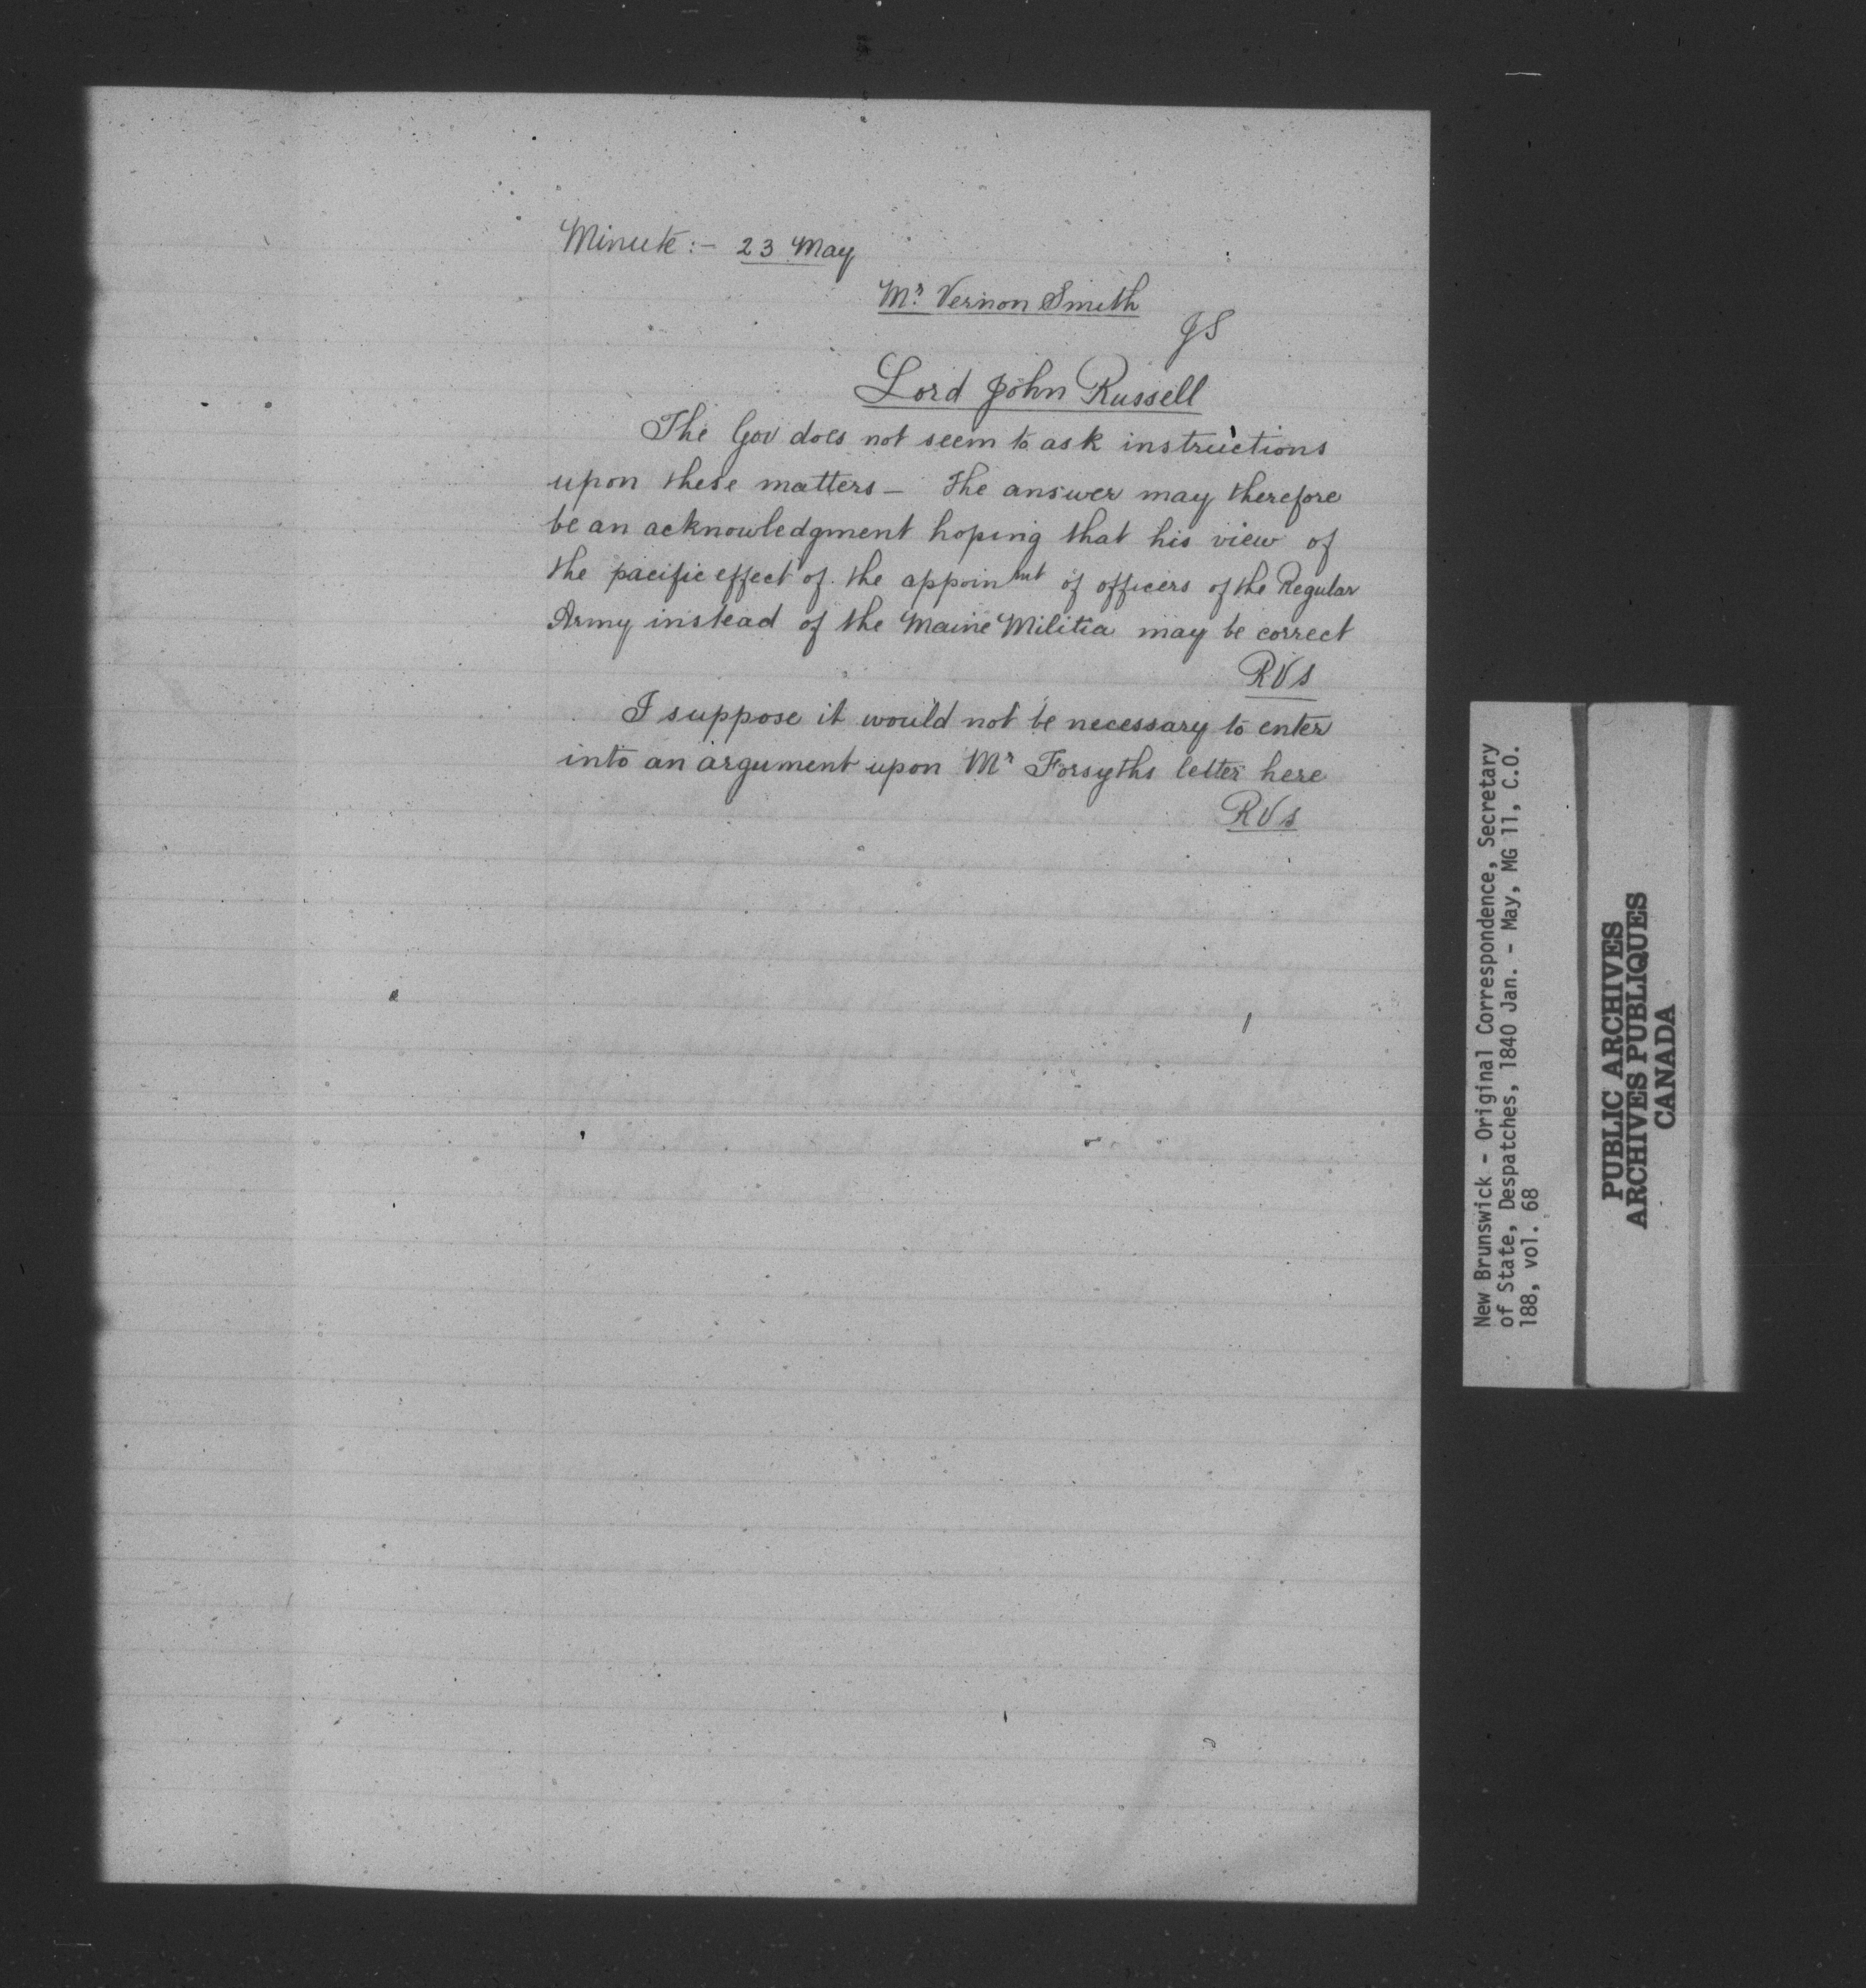 Minute:- 23 May
Mr Vernon Smith
JS
Lord John Russell
The Gov does not seem to ask instructions
upon these matters - The answer may therefore
be an acknowledgment hoping that his view of
the pacific effect of the appointmt of officers of the Regular
Army instead of the Maine Militia may be correct
RVS
I suppose it would not be necessary to enter
into an argument upon Mr Forsyths letter here
RVS
New Brunswick - Original Correspondence, Secretary
of State, Despatches, 1840 Jan. - May, MG 11, C.O.
188, vol. 68
PUBLIC ARCHIVES
ARCHIVES PUBLIQUES
CANADA